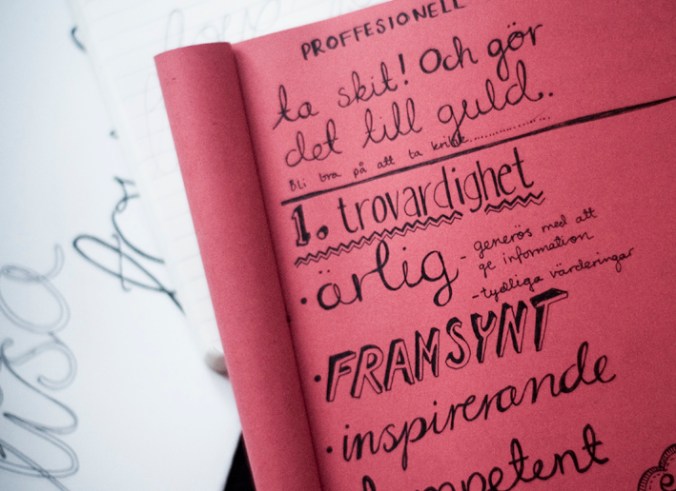 PROFFESIONELL
ta skit! Och gör
det till guld.
Bli bra på att ta kritik..............
1. trovardighet
· ärlig - generös med att
ge information
- tydliga värderingar
· FRAMSYNT
· inspirerande
kompetent